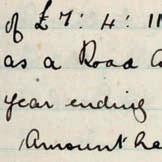 of £7: 4: 11
as a Road
year ending
Amount